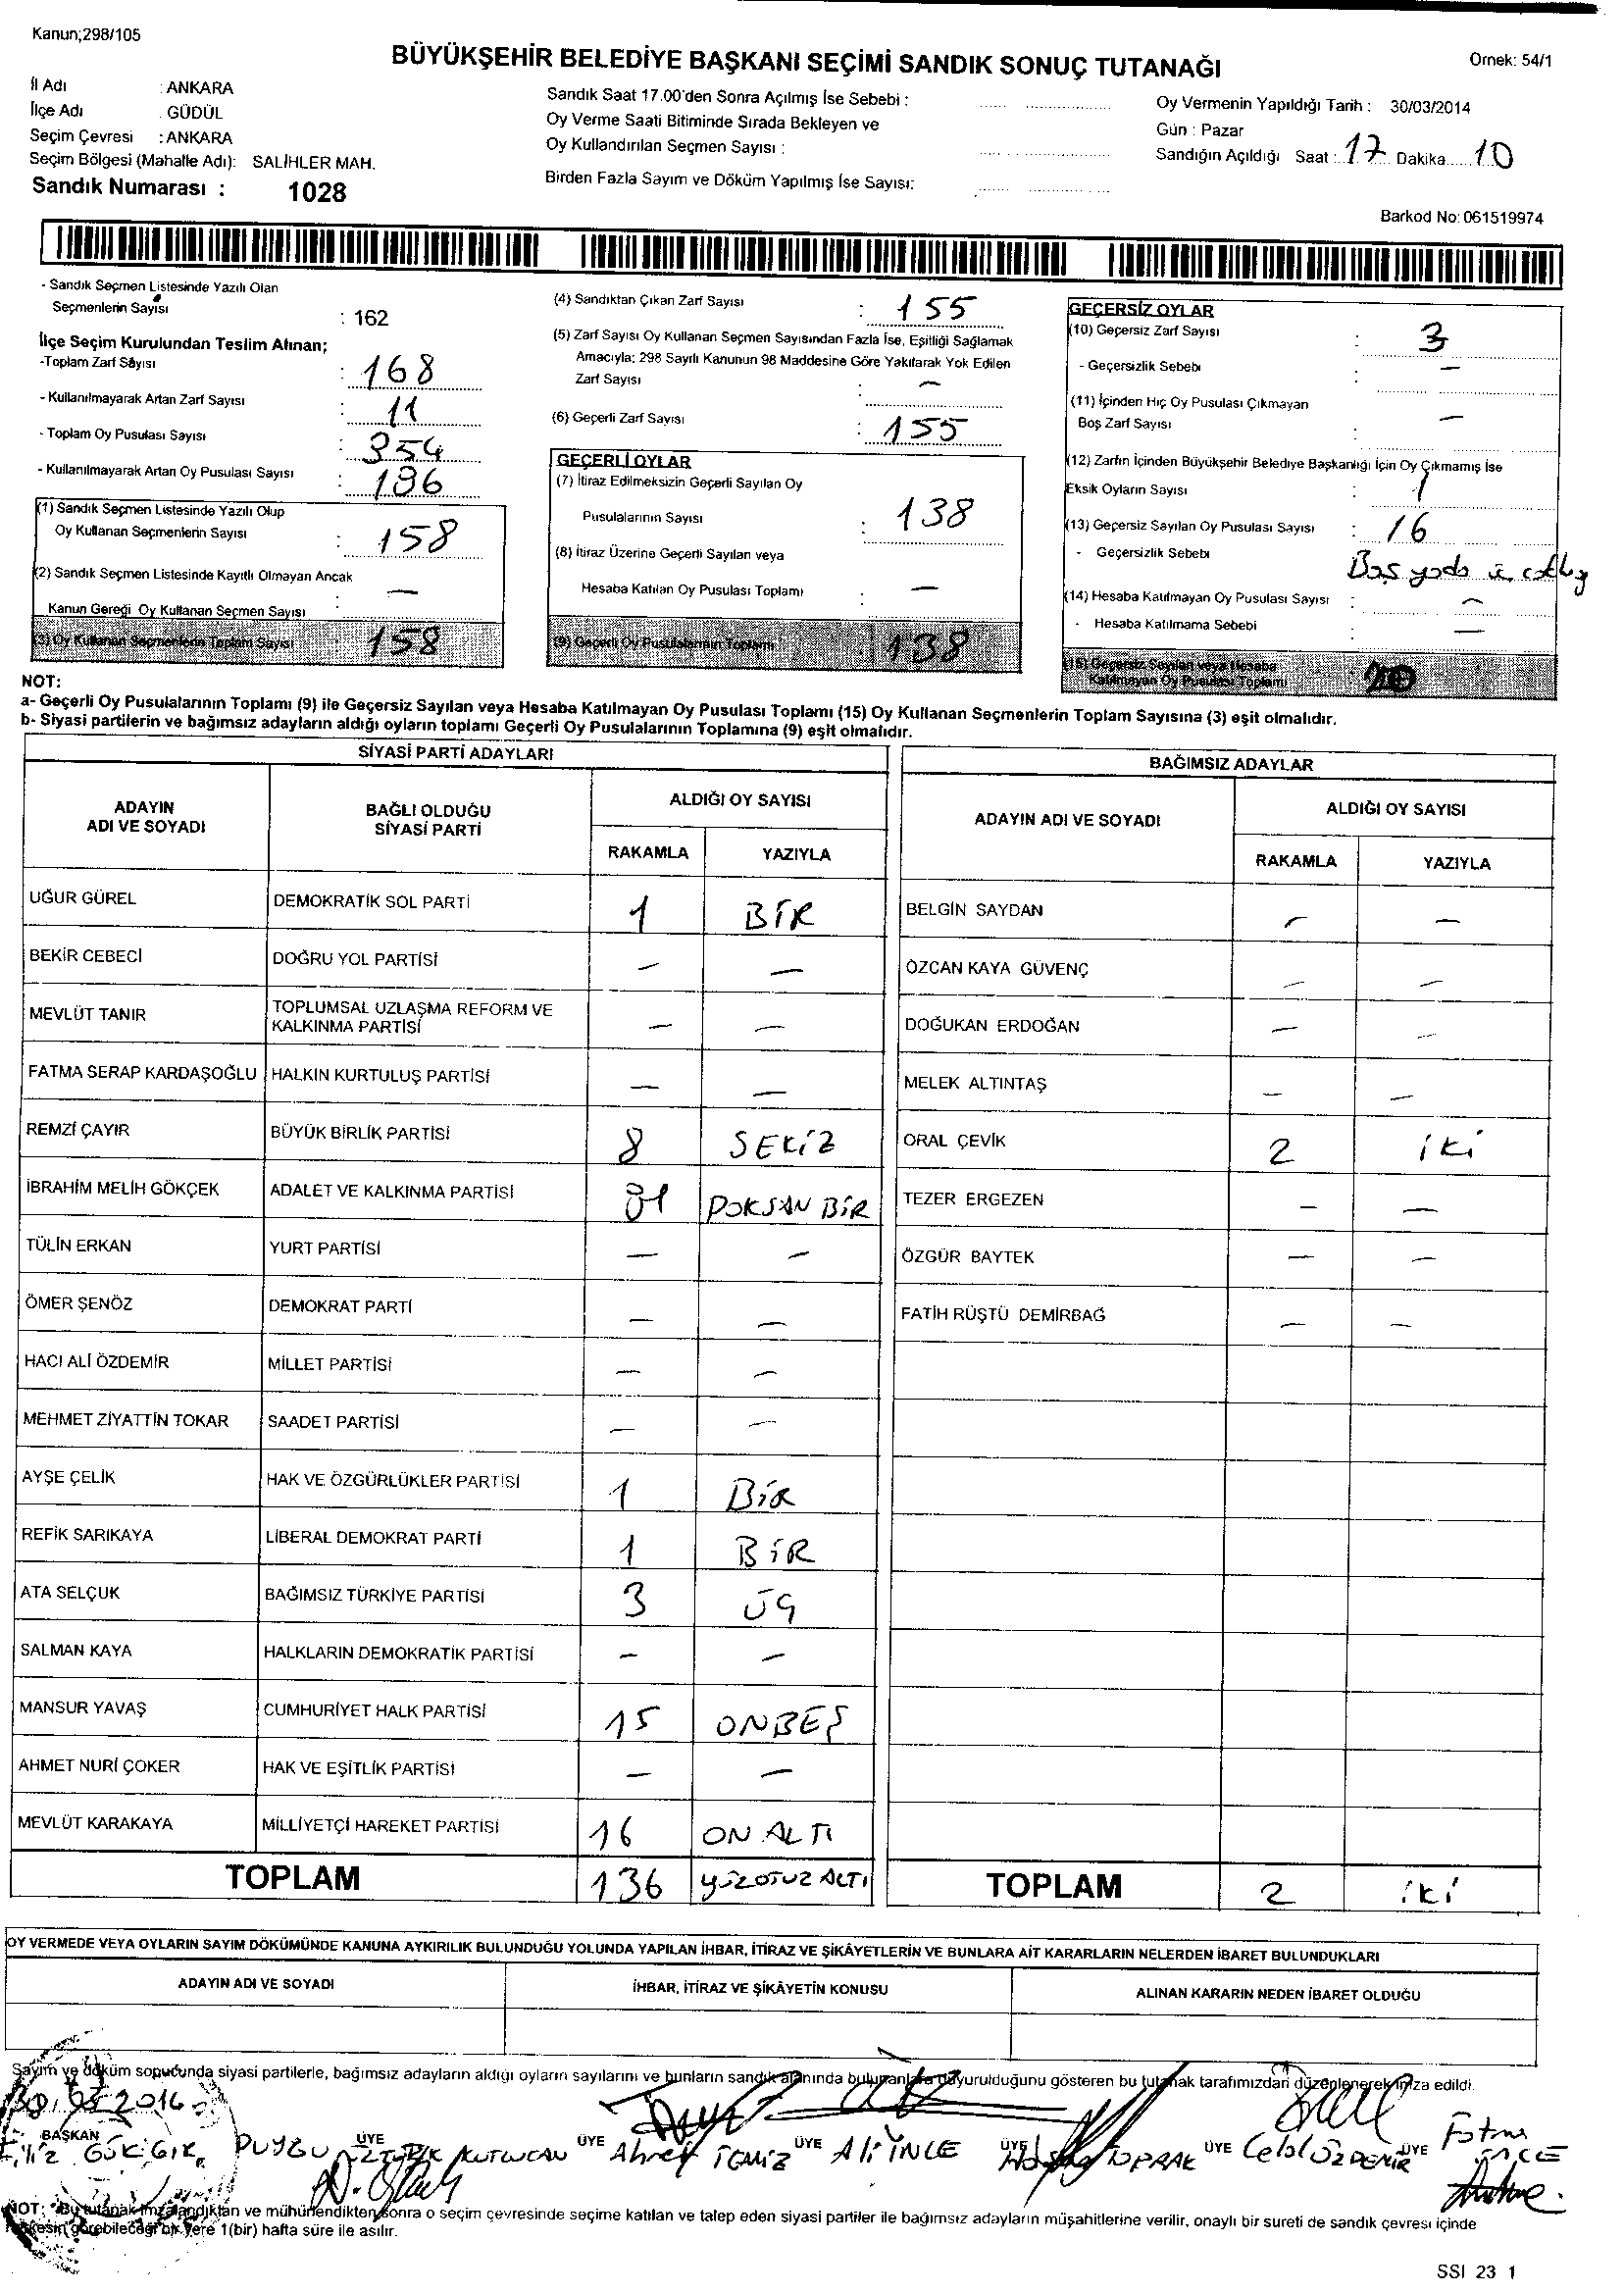 Kanun;298/105
BÜYÜKŞEHİR BELEDİYE BAŞKANI SEÇİMİ SANDIK SONUÇ TUTANAĞI
Örnek: 54/1
İl Adı : ANKARA
İlçe Adı : GÜDÜL
Seçim Çevresi : ANKARA
Seçim Bölgesi (Mahalle Adı): SALİHLER MAH.
Sandık Numarası : 1028
Sandık Saat 17.00'den Sonra Açılmış İse Sebebi :
Oy Verme Saati Bitiminde Sırada Bekleyen ve
Oy Kullandırılan Seçmen Sayısı :
Birden Fazla Sayım ve Döküm Yapılmış İse Sayısı:
Oy Vermenin Yapıldığı Tarih : 30/03/2014
Gün : Pazar
Sandığın Açıldığı Saat : 17 Dakika 10
Barkod No: 061519974
- Sandık Seçmen Listesinde Yazılı Olan
Seçmenlerin Sayısı : 162
İlçe Seçim Kurulundan Teslim Alınan;
-Toplam Zarf Sayısı : 168
- Kullanılmayarak Artan Zarf Sayısı : 11
- Toplam Oy Pusulası Sayısı : 354
- Kullanılmayarak Artan Oy Pusulası Sayısı : 196
(1) Sandık Seçmen Listesinde Yazılı Olup
Oy Kullanan Seçmenlerin Sayısı : 158
(2) Sandık Seçmen Listesinde Kayıtlı Olmayan Ancak
Kanun Gereği Oy Kullanan Seçmen Sayısı : —
(3) Oy Kullanan Seçmenlerin Toplam Sayısı : 158
(4) Sandıktan Çıkan Zarf Sayısı : 155
(5) Zarf Sayısı Oy Kullanan Seçmen Sayısından Fazla İse, Eşitliği Sağlamak
Amacıyla; 298 Sayılı Kanunun 98 Maddesine Göre Yakılarak Yok Edilen
Zarf Sayısı : —
(6) Geçerli Zarf Sayısı : 155
GEÇERLİ OYLAR
(7) İtiraz Edilmeksizin Geçerli Sayılan Oy
Pusulalarının Sayısı : 138
(8) İtiraz Üzerine Geçerli Sayılan veya
Hesaba Katılan Oy Pusulası Toplamı : —
(9) Geçerli Oy Pusulalarının Toplamı : 138
GEÇERSİZ OYLAR
(10) Geçersiz Zarf Sayısı : 3
- Geçersizlik Sebebi : —
(11) İçinden Hiç Oy Pusulası Çıkmayan
Boş Zarf Sayısı : —
(12) Zarfın İçinden Büyükşehir Belediye Başkanlığı İçin Oy Çıkmamış İse
Eksik Oyların Sayısı : 1
(13) Geçersiz Sayılan Oy Pusulası Sayısı : 16
- Geçersizlik Sebebi Boş yada
(14) Hesaba Katılmayan Oy Pusulası Sayısı : —
- Hesaba Katılmama Sebebi : —
(15) Geçersiz Sayılan veya Hesaba
Katılmayan Oy Pusulası Toplamı 20
NOT:
a- Geçerli Oy Pusulalarının Toplamı (9) ile Geçersiz Sayılan veya Hesaba Katılmayan Oy Pusulası Toplamı (15) Oy Kullanan Seçmenlerin Toplam Sayısına (3) eşit olmalıdır.
b- Siyasi partilerin ve bağımsız adayların aldığı oyların toplamı Geçerli Oy Pusulalarının Toplamına (9) eşit olmalıdır.
SİYASİ PARTİ ADAYLARI
ADAYIN ADI VE SOYADI BAĞLI OLDUĞU SİYASİ PARTİ ALDIĞI OY SAYISI
RAKAMLA YAZIYLA
UĞUR GÜREL DEMOKRATİK SOL PARTİ 1 BİR
BEKİR CEBECİ DOĞRU YOL PARTİSİ — —
MEVLÜT TANIR TOPLUMSAL UZLAŞMA REFORM VE KALKINMA PARTİSİ — —
FATMA SERAP KARDAŞOĞLU HALKIN KURTULUŞ PARTİSİ — —
REMZİ ÇAYIR BÜYÜK BİRLİK PARTİSİ 8 SEKİZ
İBRAHİM MELİH GÖKÇEK ADALET VE KALKINMA PARTİSİ 91 DOKSAN BİR
TÜLİN ERKAN YURT PARTİSİ — —
ÖMER ŞENÖZ DEMOKRAT PARTİ — —
HACI ALİ ÖZDEMİR MİLLET PARTİSİ — —
MEHMET ZİYATTİN TOKAR SAADET PARTİSİ — —
AYŞE ÇELİK HAK VE ÖZGÜRLÜKLER PARTİSİ 1 BİR
REFİK SARIKAYA LİBERAL DEMOKRAT PARTİ 1 BİR
ATA SELÇUK BAĞIMSIZ TÜRKİYE PARTİSİ 3 ÜÇ
SALMAN KAYA HALKLARIN DEMOKRATİK PARTİSİ — —
MANSUR YAVAŞ CUMHURİYET HALK PARTİSİ 15 ONBEŞ
AHMET NURİ ÇOKER HAK VE EŞİTLİK PARTİSİ — —
MEVLÜT KARAKAYA MİLLİYETÇİ HAREKET PARTİSİ 16 ON ALTI
TOPLAM 136 YÜZOTUZ ALTI
BAĞIMSIZ ADAYLAR
ADAYIN ADI VE SOYADI ALDIĞI OY SAYISI
RAKAMLA YAZIYLA
BELGİN SAYDAN — —
ÖZCAN KAYA GÜVENÇ — —
DOĞUKAN ERDOĞAN — —
MELEK ALTINTAŞ — —
ORAL ÇEVİK 2 İKİ
TEZER ERGEZEN — —
ÖZGÜR BAYTEK — —
FATİH RÜŞTÜ DEMİRBAĞ — —
TOPLAM 2 İKİ
OY VERMEDE VEYA OYLARIN SAYIM DÖKÜMÜNDE KANUNA AYKIRILIK BULUNDUĞU YOLUNDA YAPILAN İHBAR, İTİRAZ VE ŞİKÂYETLERİN VE BUNLARA AİT KARARLARIN NELERDEN İBARET BULUNDUKLARI
ADAYIN ADI VE SOYADI İHBAR, İTİRAZ VE ŞİKÂYETİN KONUSU ALINAN KARARIN NEDEN İBARET OLDUĞU
Sayım ve döküm sonucunda siyasi partilerle, bağımsız adayların aldığı oyların sayılarını ve bunların sandık alanında bulunanlara duyurulduğunu gösteren bu tutanak tarafımızdan düzenlenerek imza edildi.
30.03.2014
BAŞKAN ÜYE ÜYE ÜYE ÜYE ÜYE ÜYE
DUYGU ÖZTÜRK KUTLUCAN Ahmet TEMİZ ALİ İNCE TOPRAK Celal ÖZDEMİR Fatma İNCE
NOT: Bu tutanak imzalandıktan ve mühürlendikten sonra o seçim çevresinde seçime katılan ve talep eden siyasi partiler ile bağımsız adayların müşahitlerine verilir, onaylı bir sureti de sandık çevresi içinde
herkesin görebileceği bir yere 1(bir) hafta süre ile asılır.
SSI 23 1